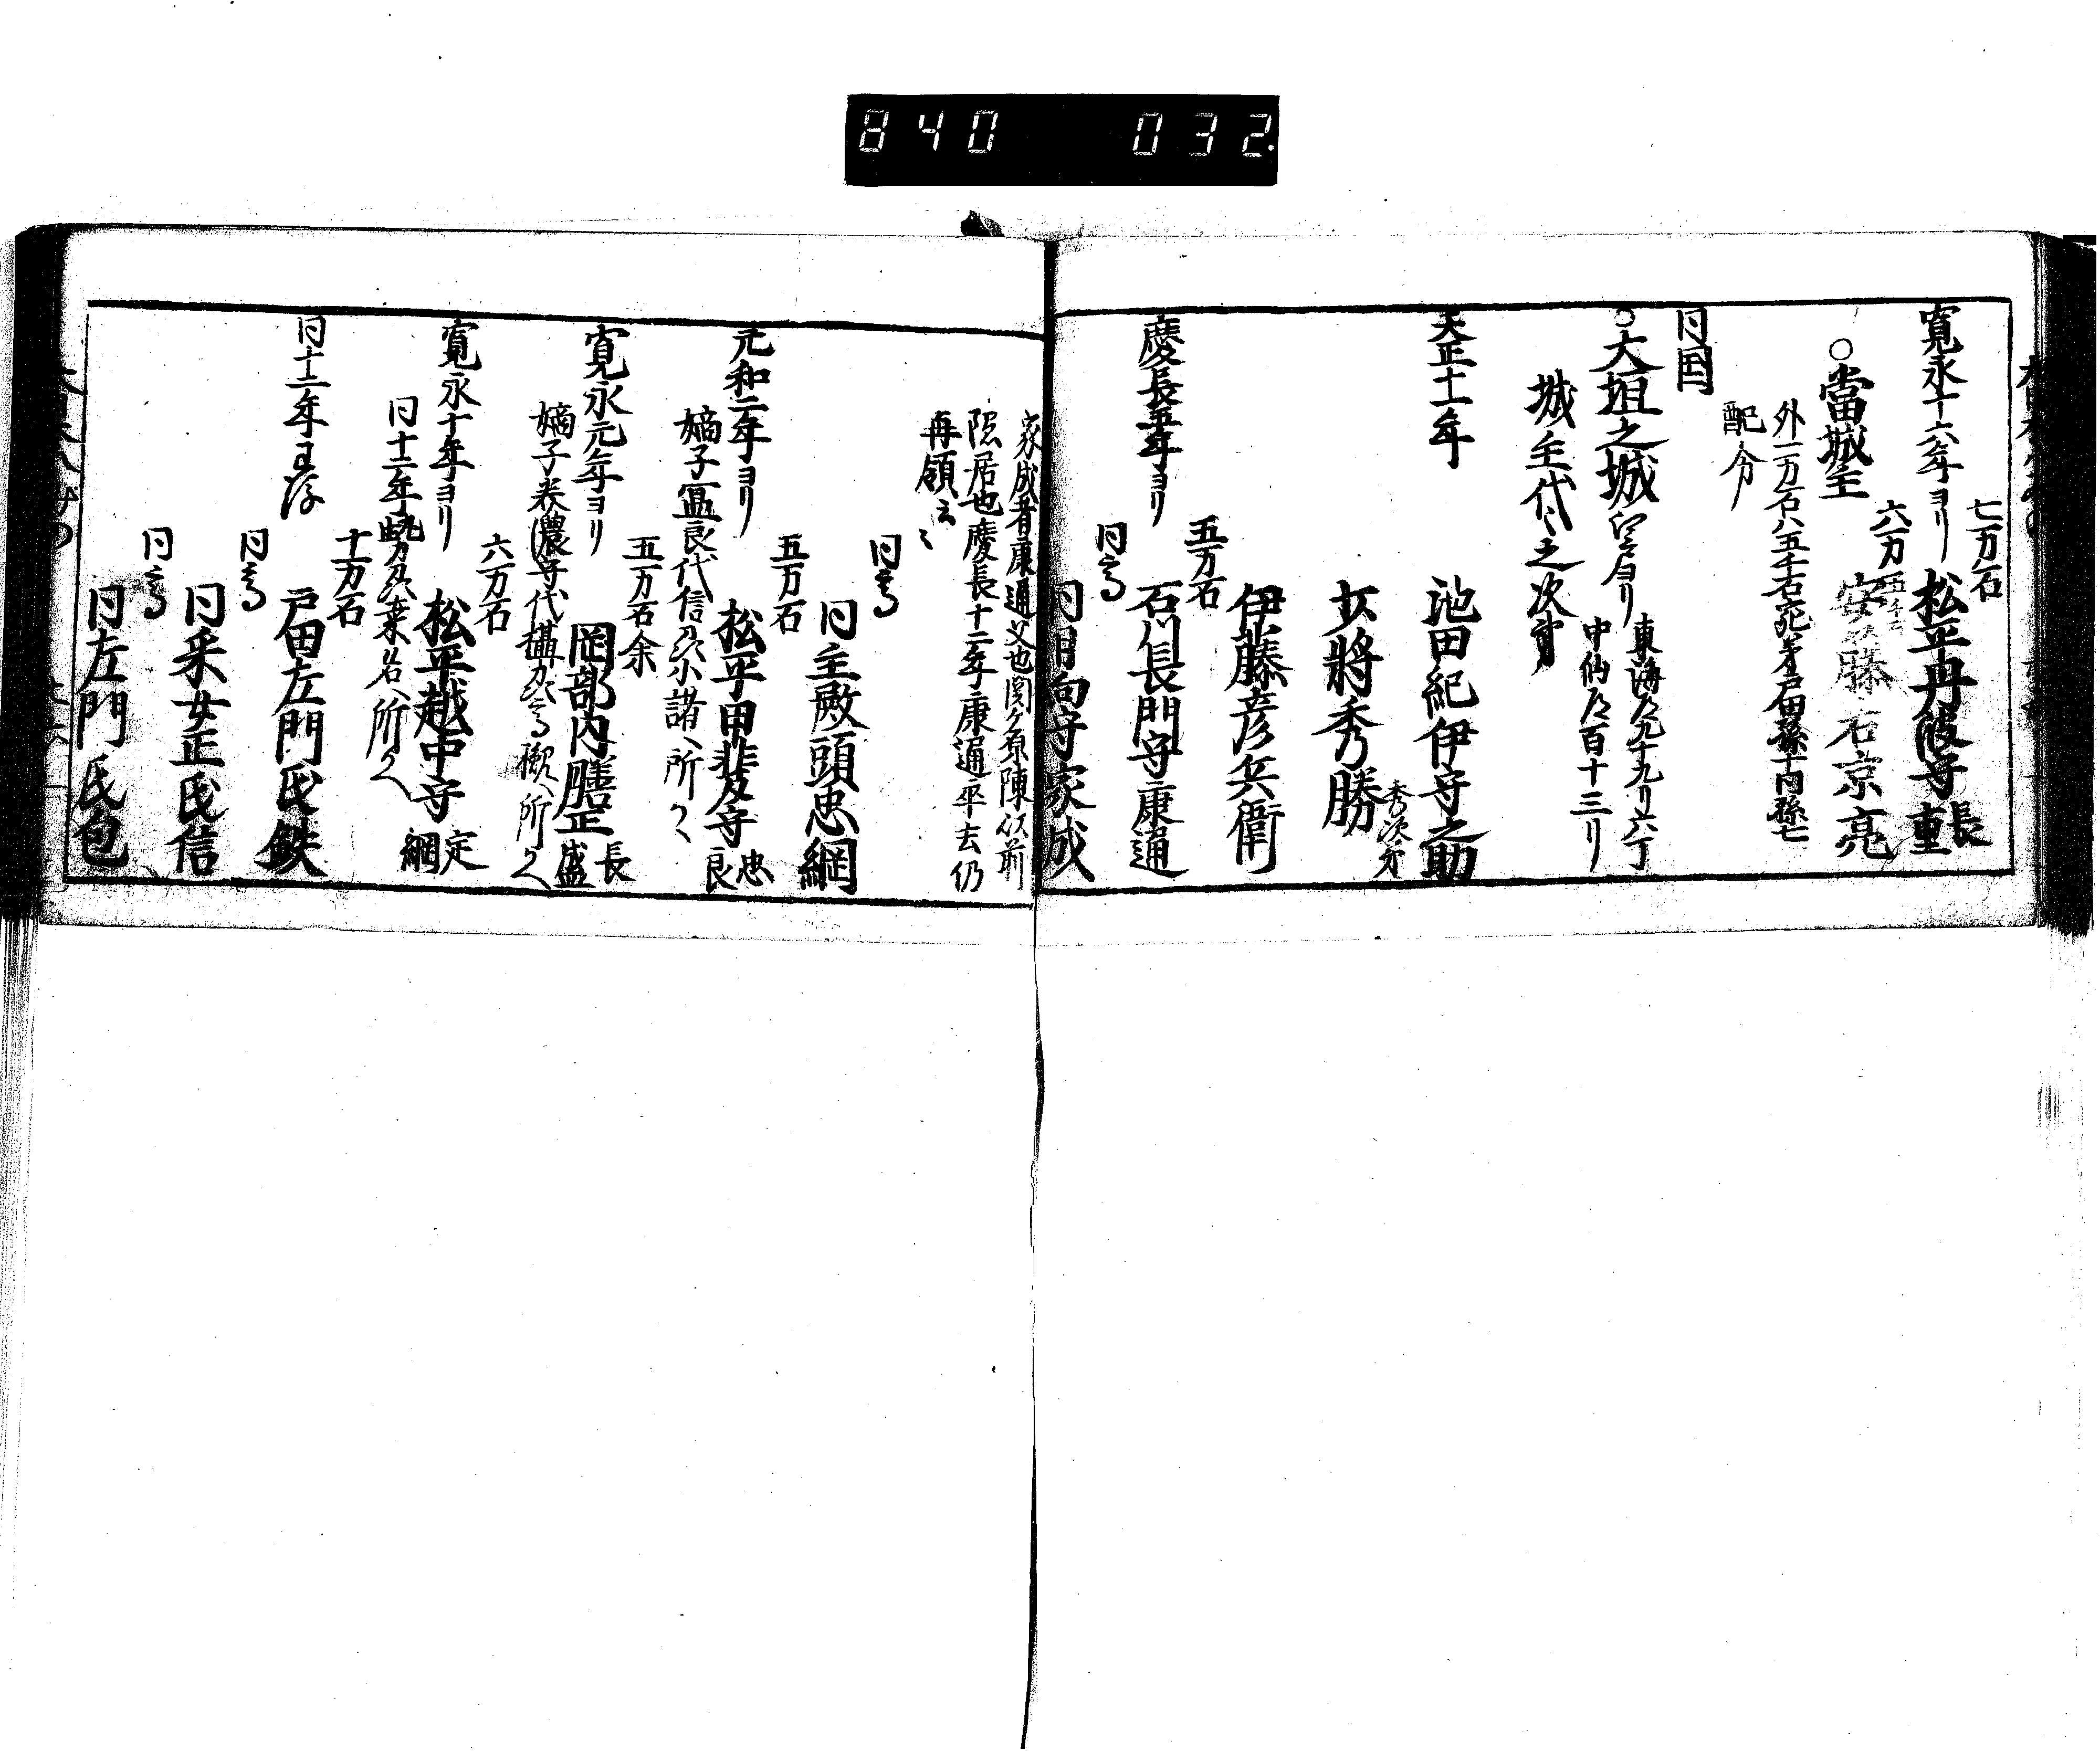 840 032
七万石
寛永十六年ヨリ 松平丹波守 長重
六万五千石
○當城主 安藤右京亮
外二万石ハ五千石宛弟戸田孫十内孫七
配分
同国
○大垣之城 江戸ヨリ 東海道九十九リ六丁
中仙道百十三リ
城主代々之次第
天正十一年 池田紀伊守之助
秀次弟
女將秀勝
伊藤彦兵衛
五万石
慶長五年ヨリ 石川長門守康通
同高
同日向守家成
家成者康通父也関ヶ原陳以前
隠居也慶長十二年康通卒去仍
再領云々
同高
同主殿頭忠綱
五万石
元和二年ヨリ 松平甲斐守 忠良
嫡子因良代信刕小諸へ所く
五万石余
寛永元年ヨリ 岡部内膳正 長盛
嫡子美濃守代攝刕高槻へ所く
六万石
寛永十年ヨリ 松平越中守 定綱
同十二年勢刕桒名へ所く
十万石
同十二年ヨリ 戸田左門氏鉄
同高
同采女正氏信
同高
同左門氏包